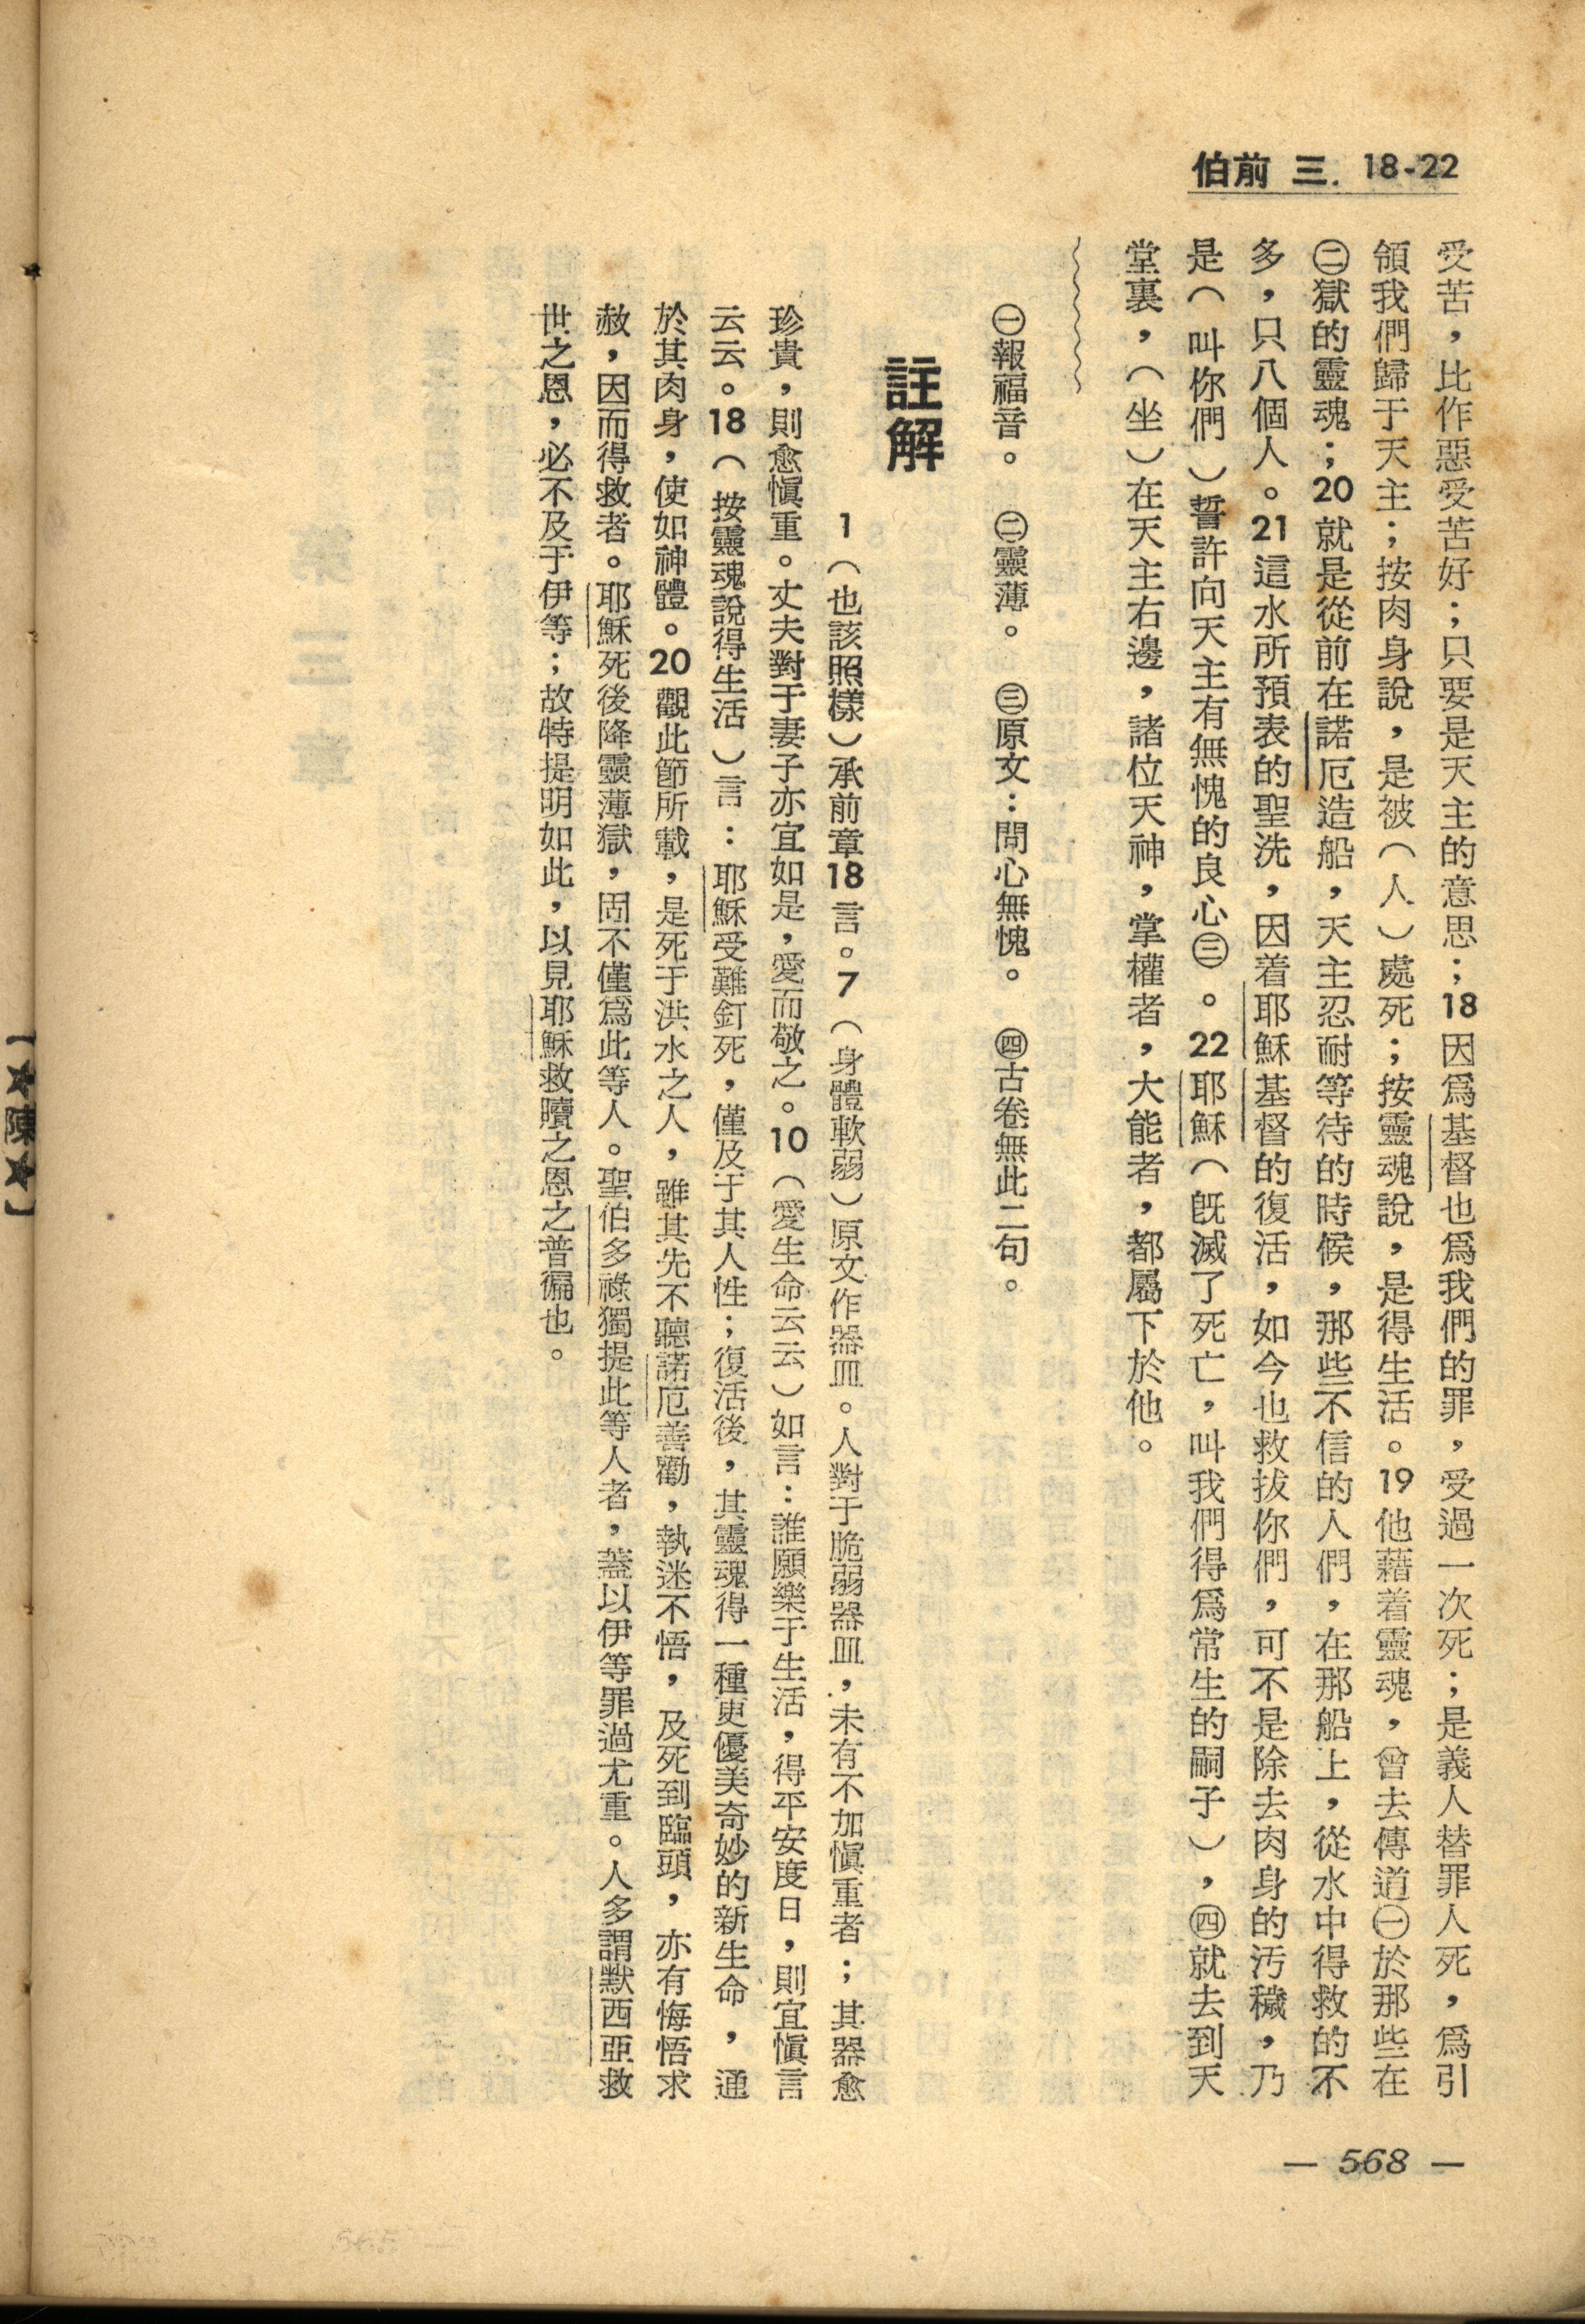 伯前 三. 18-22
受苦，比作惡受苦好；只要是天主的意思；18因爲基督也爲我們的罪，受過一次死；是義人替罪人死，爲引
領我們歸于天主；按肉身說，是被（人）處死；按靈魂說，是得生活。19他藉着靈魂，曾去傳道㊀於那些在
㊁獄的靈魂；20就是從前在諾厄造船，天主忍耐等待的時候，那些不信的人們，在那船上，從水中得救的不
多，只八個人。21這水所預表的聖洗，因着耶穌基督的復活，如今也救拔你們，可不是除去肉身的汚穢，乃
是（叫你們）誓許向天主有無愧的良心㊂。22耶穌（旣滅了死亡，叫我們得爲常生的嗣子），㊃就去到天
堂裏，（坐）在天主右邊，諸位天神，掌權者，大能者，都屬下於他。
㊀報福音。 ㊁靈薄。 ㊂原文：問心無愧。 ㊃古卷無此二句。
註解
1（也該照樣）承前章18言。7（身體軟弱）原文作器皿。人對于脆弱器皿，未有不加愼重者；其器愈
珍貴，則愈愼重。丈夫對于妻子亦宜如是，愛而敬之。10（愛生命云云）如言：誰願樂于生活，得平安度日，則宜愼言
云云。18（按靈魂說得生活）言：耶穌受難釘死，僅及于其人性；復活後，其靈魂得一種更優美奇妙的新生命，通
於其肉身，使如神體。20觀此節所載，是死于洪水之人，雖其先不聽諾厄善勸，執迷不悟，及死到臨頭，亦有悔悟求
赦，因而得救者。耶穌死後降靈薄獄，固不僅爲此等人。聖伯多祿獨提此等人者，蓋以伊等罪過尤重。人多謂默西亞救
世之恩，必不及于伊等；故特提明如此，以見耶穌救贖之恩之普徧也。
— 568 —
【★陳★】